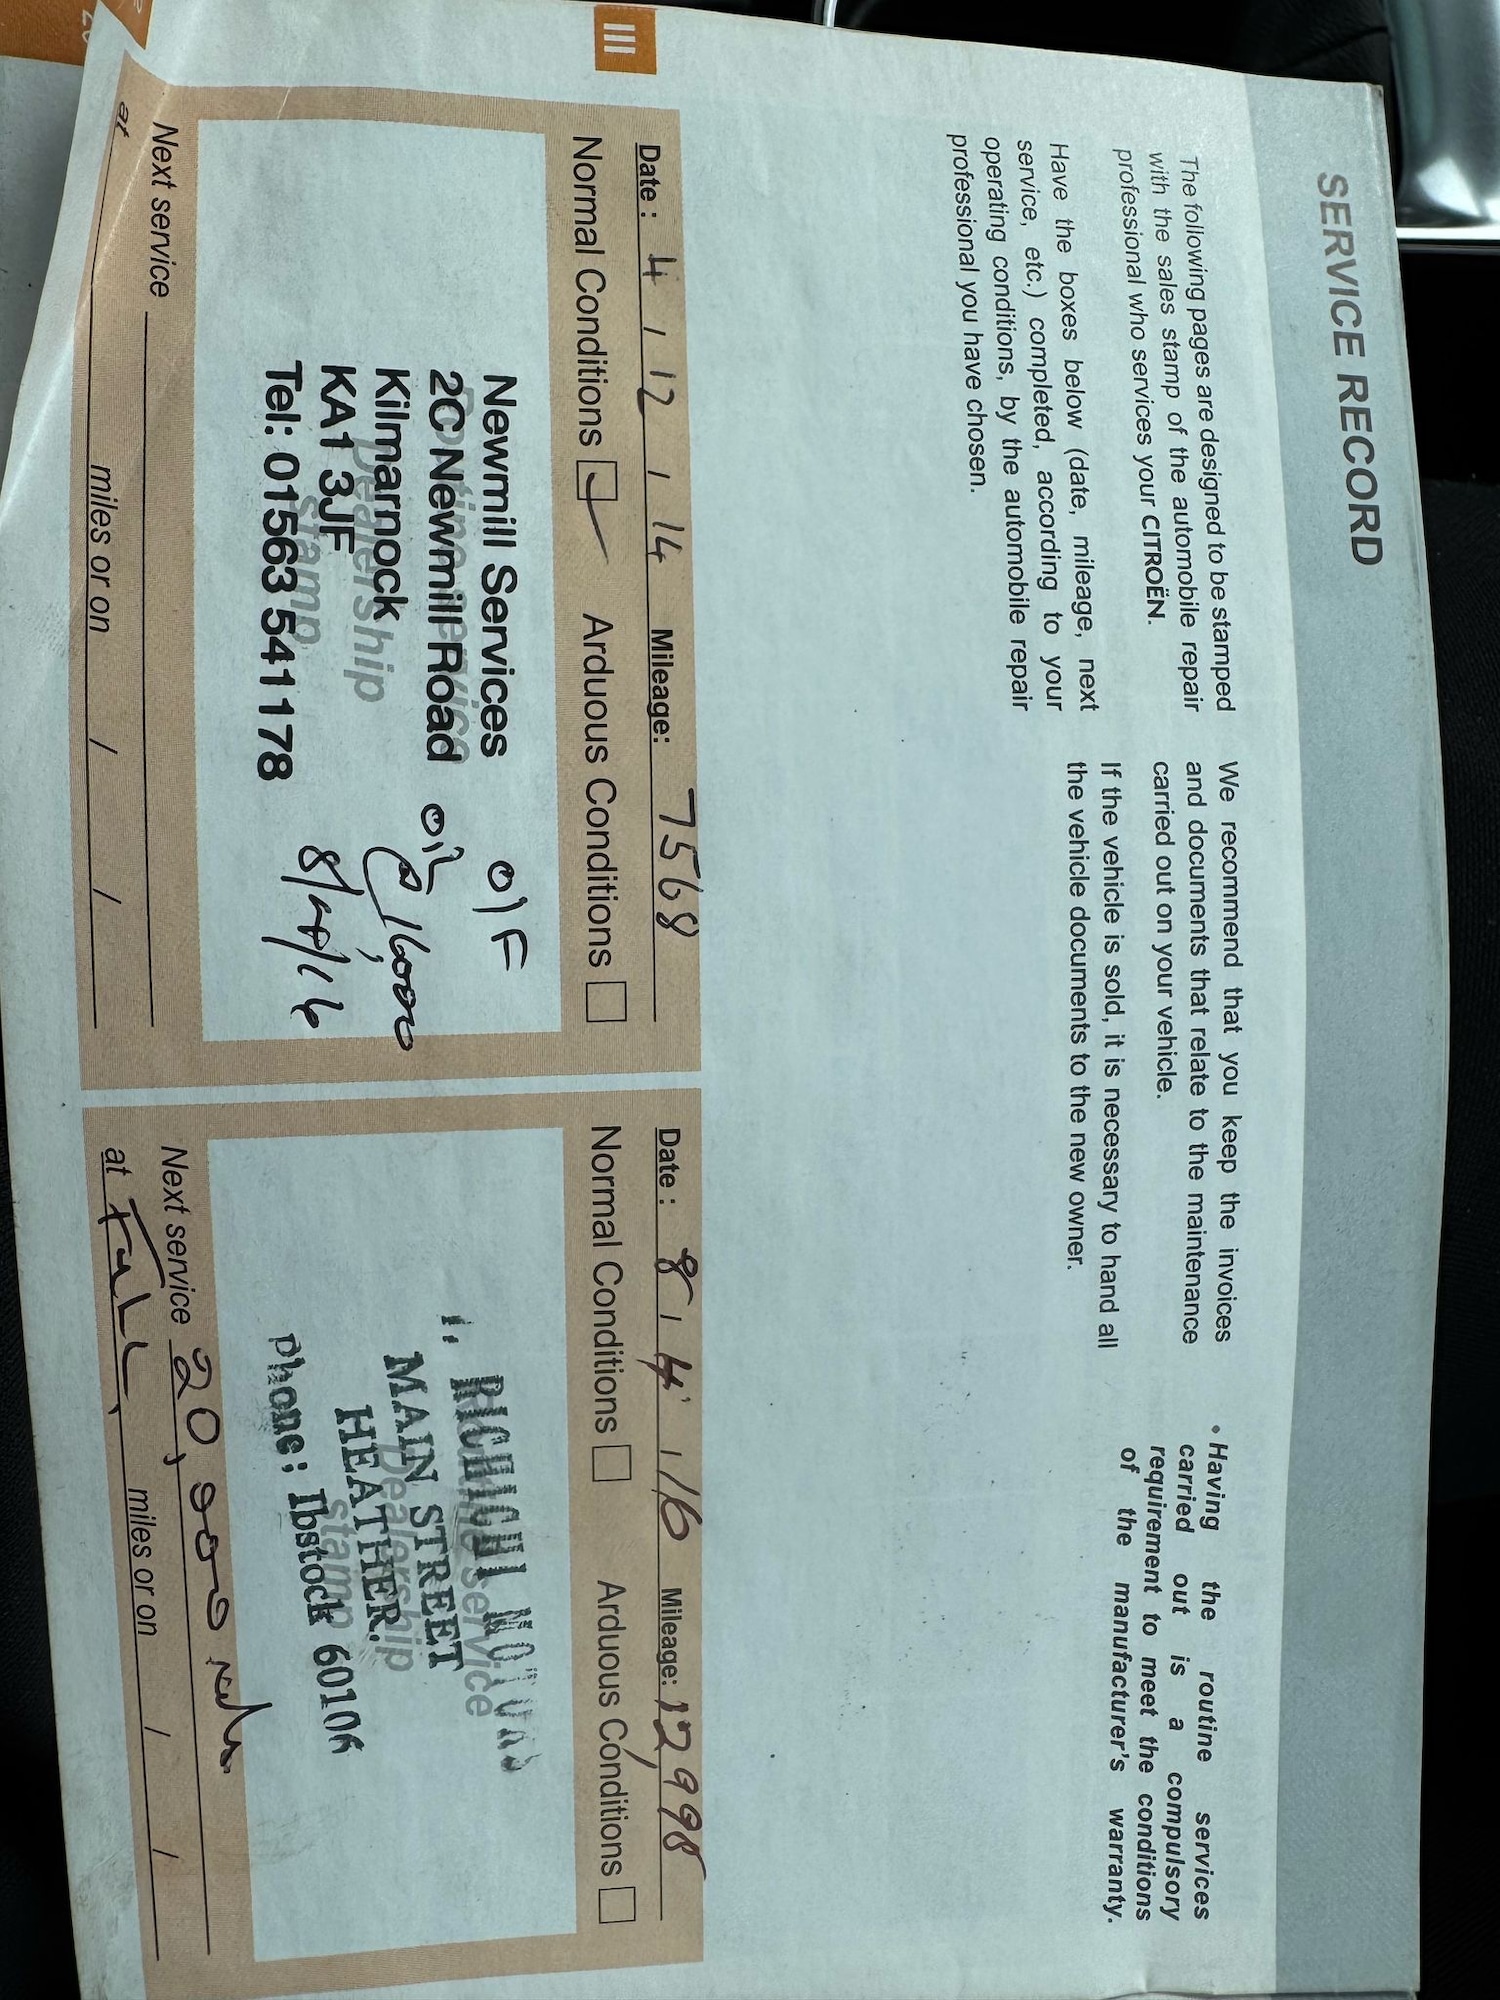 SERVICE RECORD
The following pages are designed to be stamped
with the sales stamp of the automobile repair
professional who services your CITROËN.
Have the boxes below (date, mileage, next
service, etc.) completed, according to your
operating conditions, by the automobile repair
professional you have chosen.
We recommend that you keep the invoices
and documents that relate to the maintenance
carried out on your vehicle.
If the vehicle is sold, it is necessary to hand all
the vehicle documents to the new owner.
• Having the routine services
carried out is a compulsory
requirement to meet the conditions
of the manufacturer's warranty.
III
Date : 4 / 12 / 14 Mileage: 7568
Normal Conditions Arduous Conditions
Newmill Services
2C Newmill Road
Kilmarnock
KA1 3JF
Tel: 01563 541178
Dealership
stamp
O/F
oil
@ 16,000
Next service
at miles or on / /
Date : 8 / 4 / 16 Mileage: 12,998
Normal Conditions Arduous Conditions
Routine service
Dealership
stamp
MAIN STREET
HEATHER.
Phone: Ibstock 60106
Next service 20,500
at miles or on / /